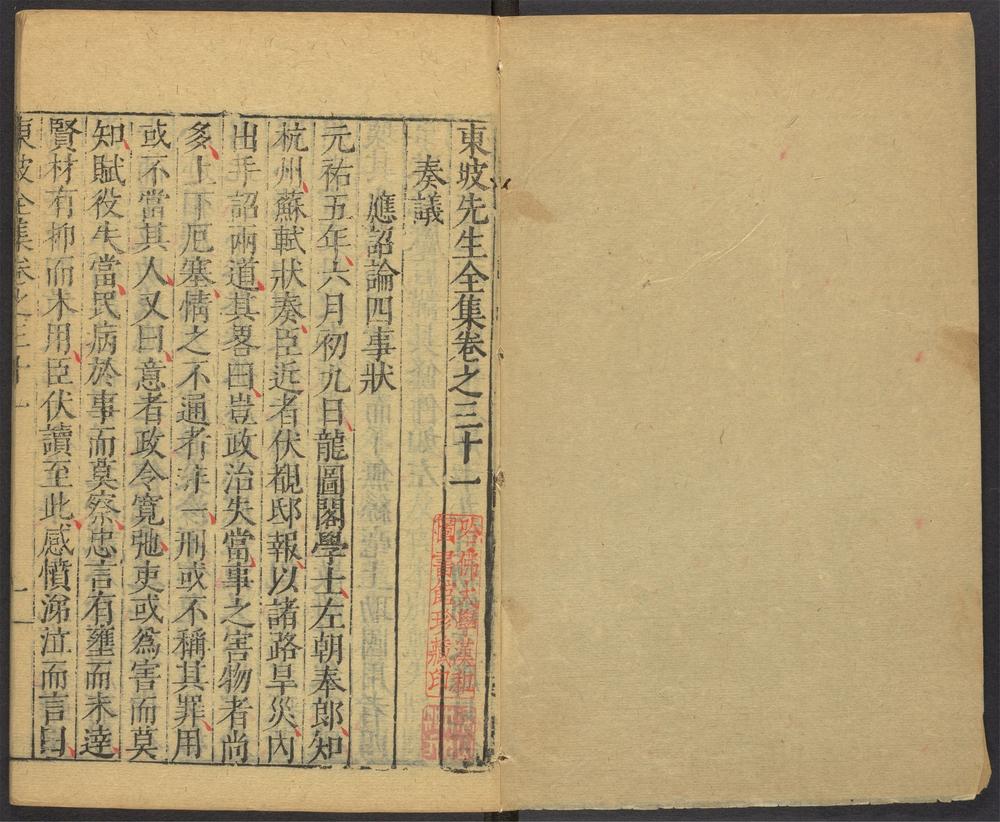 東坡先生全集卷之三十一
奏議
應詔論四事狀
元祐五年六月初九日龍圖閣學士左朝奉郎知
杭州蘇軾狀奏臣近者伏覩邸報以諸路旱災內
出手詔兩道其畧曰豈政治失當事之害物者尚
多上下厄塞情之不通者非一刑或不稱其罪用
或不當其人又曰意者政令寬弛吏或爲害而莫
知賦役失當民病於事而莫察忠言有壅而未達
賢材有抑而未用臣伏讀至此感憤涕泣而言曰
東坡全集卷之三十一
一
哈佛大學漢和
圖書館珍藏印